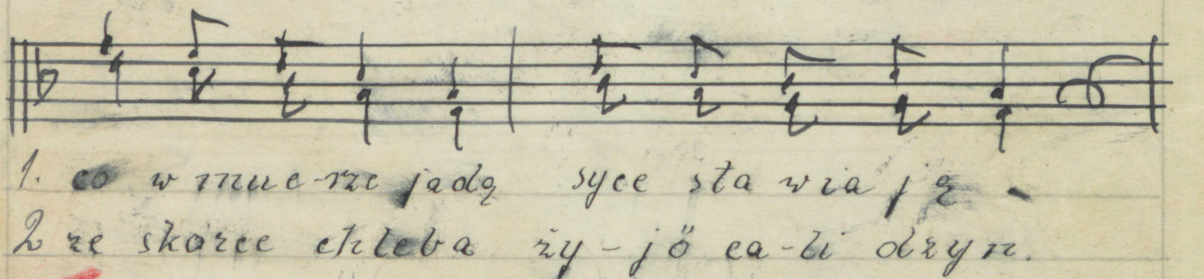 1. co w mue-rze jadą syce sta wia ją
2 ze skórce chleba ży-jö ca-li dzyn.